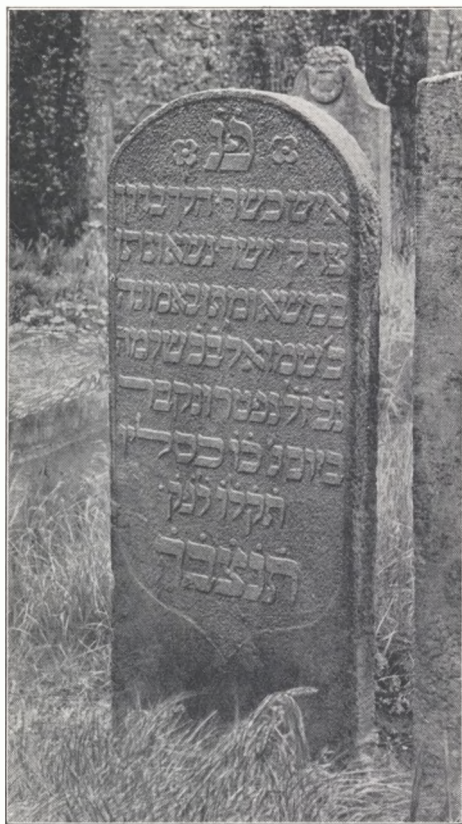 פנ
איש כשר הלך בדרך
צדק וישר נשא ונתן
במשא ומתן באמונה
כ׳ שמואל בכ׳ שלמה
ז״ל נפטר ונקבר
ביום ג׳ כו כסליו
תקלו לפק
תנצבה